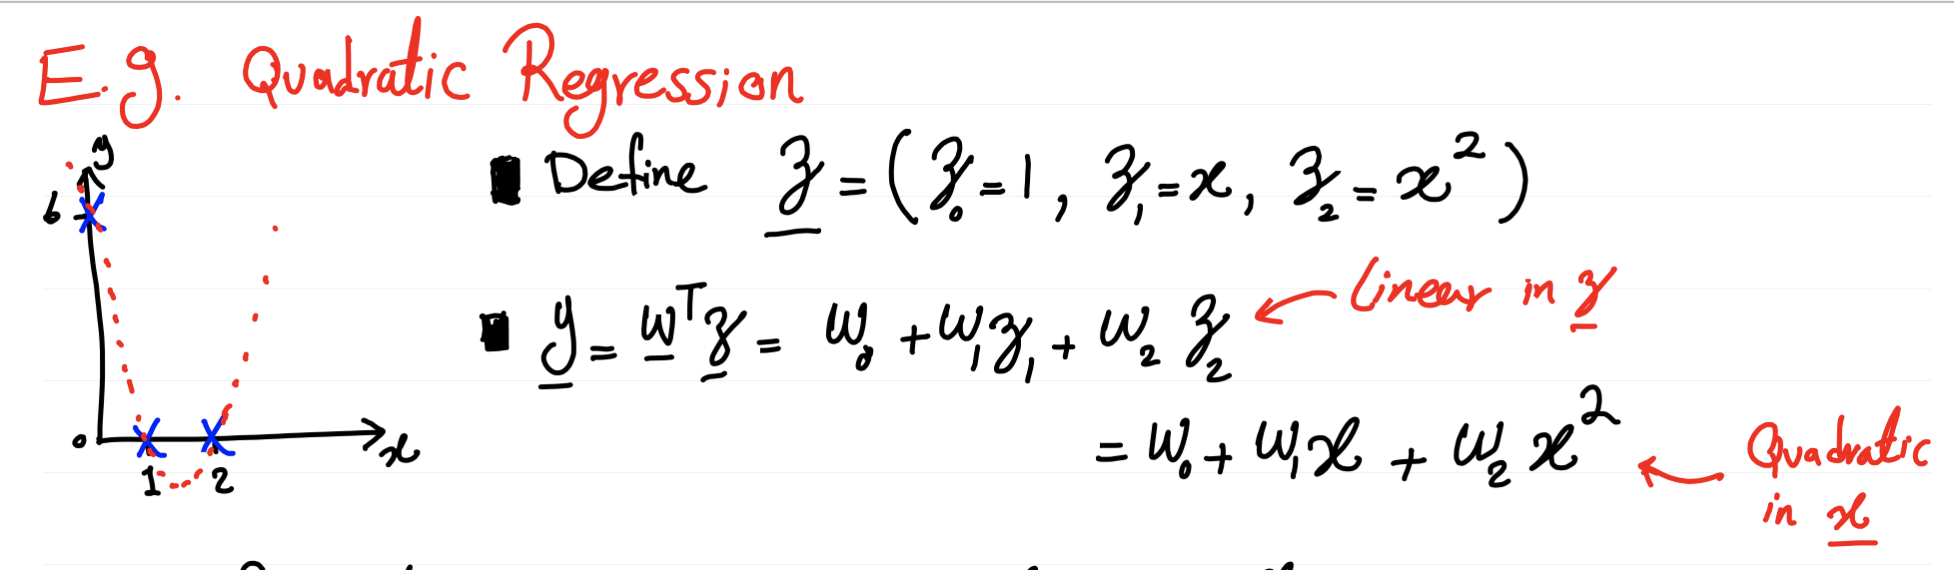 E.g. Quadratic Regression
y
6
0
1 2
x
Define z = (z₀=1, z₁=x, z₂=x²)
y = wᵀz = w₀ + w₁z₁ + w₂z₂ ← linear in z
= w₀ + w₁x + w₂x² ← Quadratic
in x